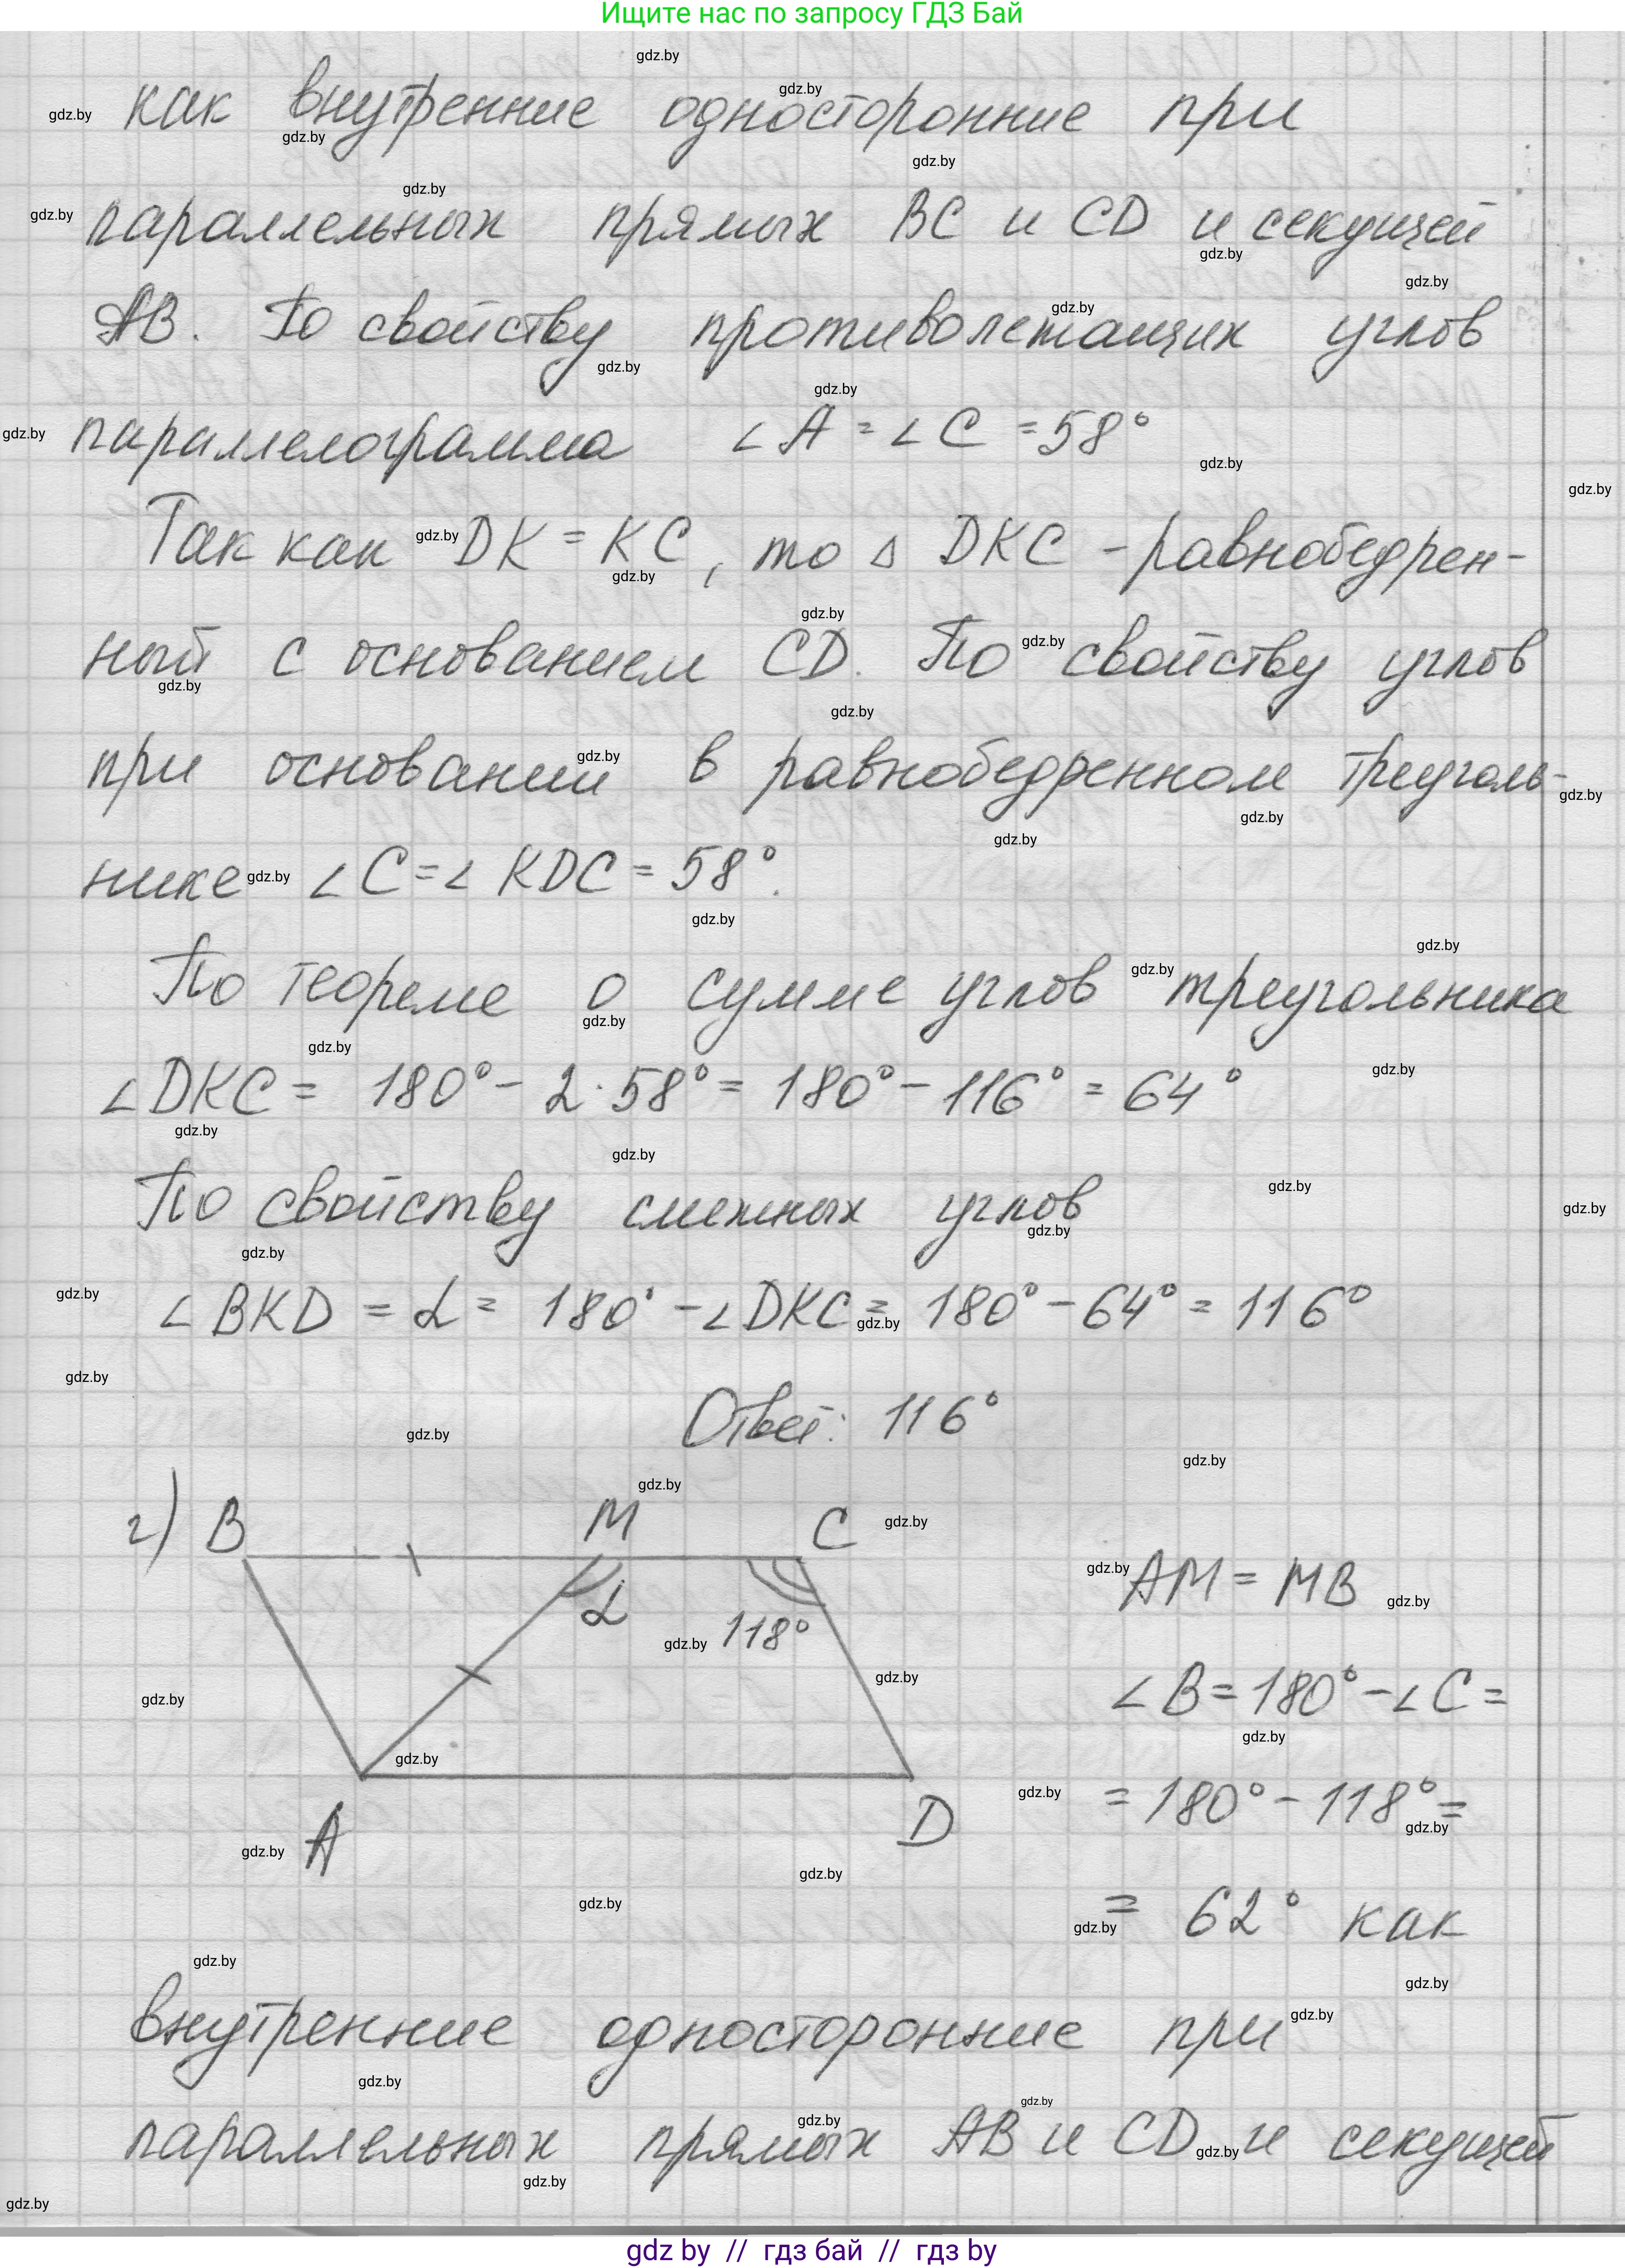 Ищите нас по запросу ГДЗ Бай
как внутренние односторонние при
параллельных прямых BC и CD и секущей
AB. По свойству противолежащих углов
параллелограмма ∠A = ∠C = 58°
Так как DK = KC, то △ DKC - равнобедрен-
ный с основанием CD. По свойству углов
при основании в равнобедренном треуголь-
нике ∠C = ∠KDC = 58°.
По теореме о сумме углов треугольника
∠DKC = 180° - 2·58° = 180° - 116° = 64°
По свойству смежных углов
∠BKD = α = 180° - ∠DKC = 180° - 64° = 116°
Ответ: 116°
г) B M C
α 118°
A D
AM = MB
∠B = 180° - ∠C =
= 180° - 118° =
= 62° как
внутренние односторонние при
параллельных прямых AB и CD и секущей
gdz by // гдз бай // гдз by